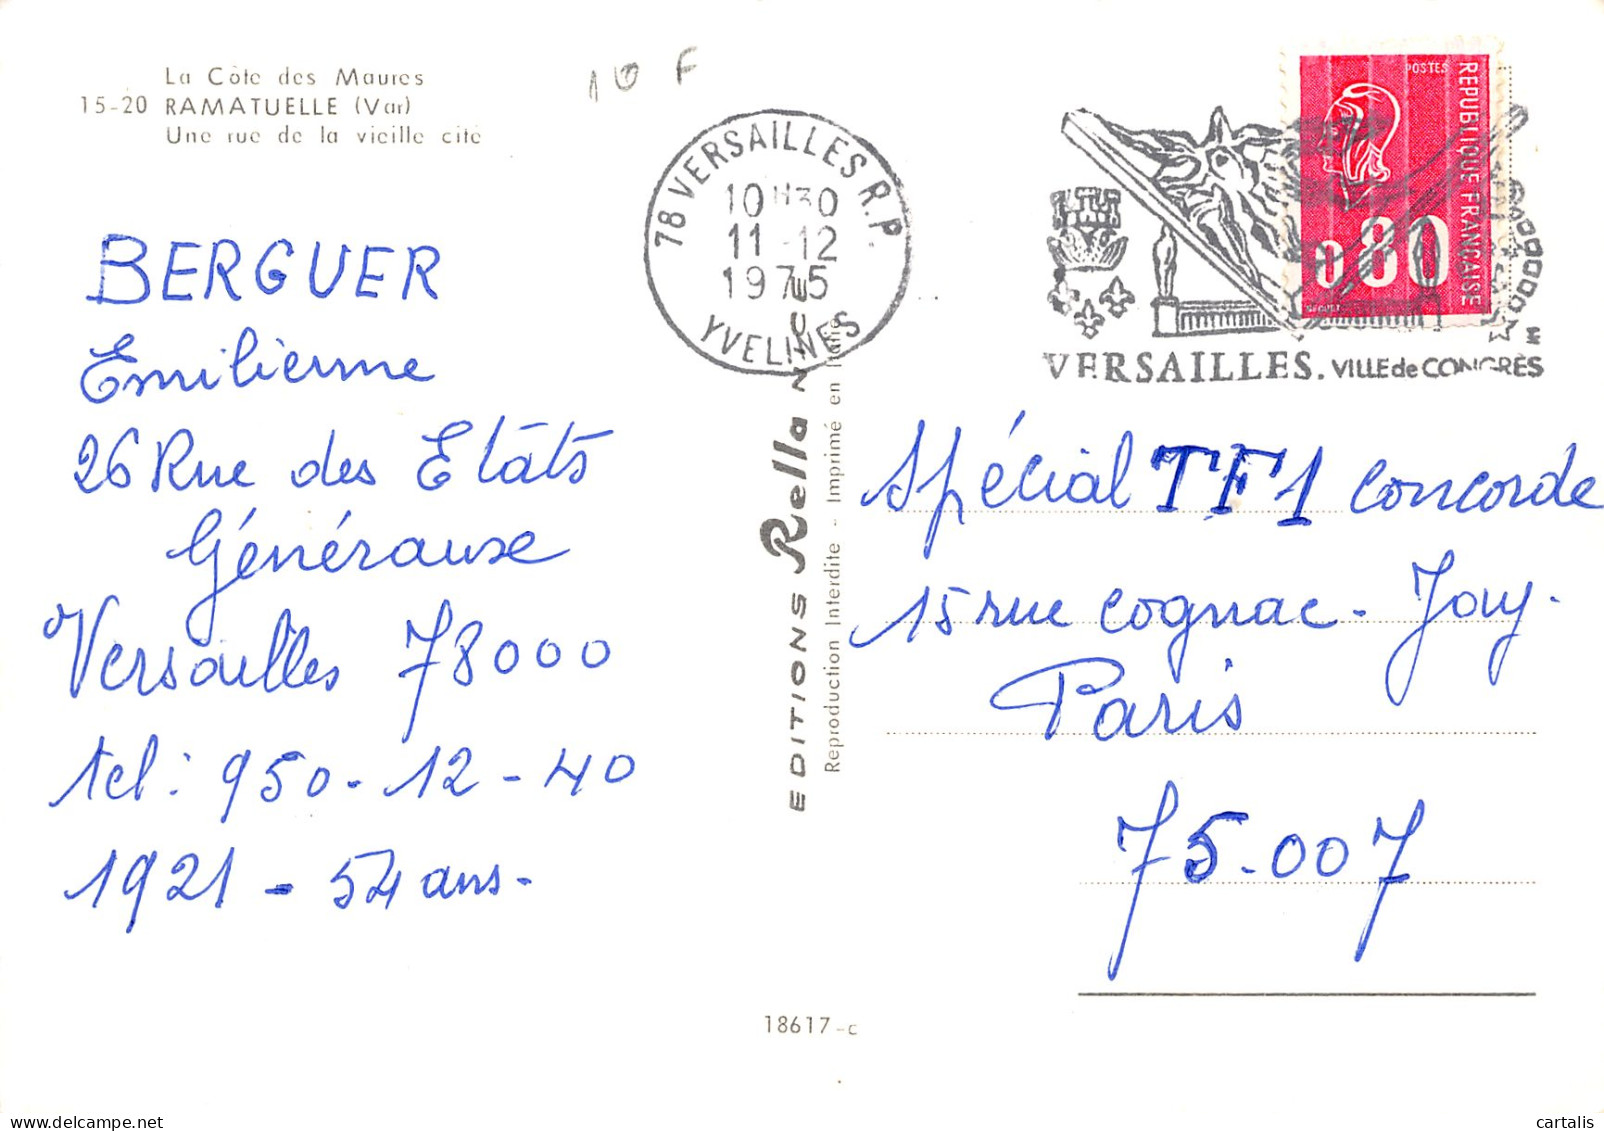 La Côte des Maures
15-20 RAMATUELLE (Var)
Une rue de la vieille cité
10 F
78 VERSAILLES R.P.
10H30
11-12
1975
YVELINES
POSTES
REPUBLIQUE FRANÇAISE
0.80
VERSAILLES. VILLE de CONGRÈS
BERGUER
Emilienne
26 Rue des Etâts
Générause
Versailles 78000
tel: 950-12-40
1921 - 54 ans-
EDITIONS Rella NICE
Reproduction Interdite - Imprimé en Italie
Spécial TF1 Concorde
15 rue Cognac-Jouy.
Paris
75.007
18617-c
delcampe.net
cartalis